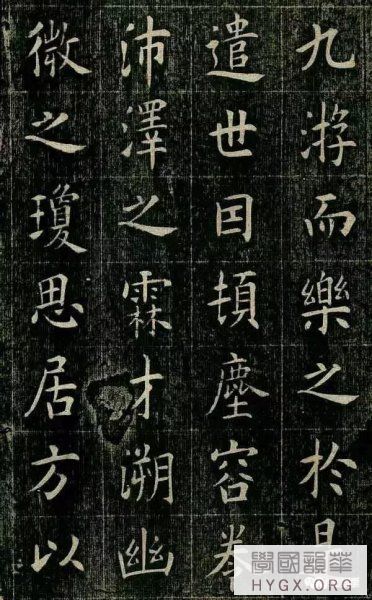 九游而樂之於是
遣世囙頓塵容卷
沛澤之霖才溯幽
微之瓊思居方以
華韻國學
HYGX.ORG